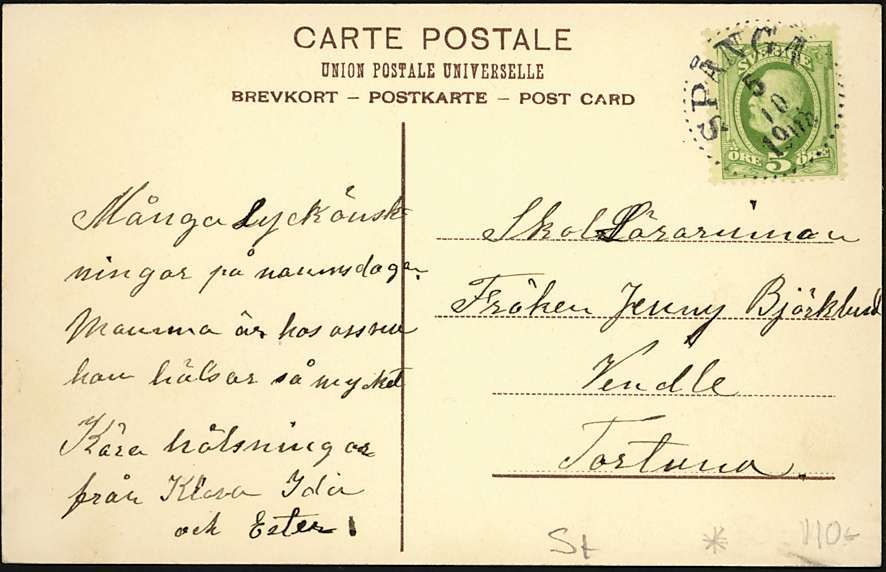 CARTE POSTALE
UNION POSTALE UNIVERSELLE
BREVKORT – POSTKARTE – POST CARD
SPÅNGA
5
10
SVERIGE
ÖRE 5 ÖRE
Många Lyckönsk
ningar på namnsdagen
Mamma är hos oss nu
hon hälsar så mycket
Kära hälsningar
från Klara Ida
och Ester
Skol Lärarinnan
Fröken Jenny Björklund
Vendle
Tortuna.
St * 110-